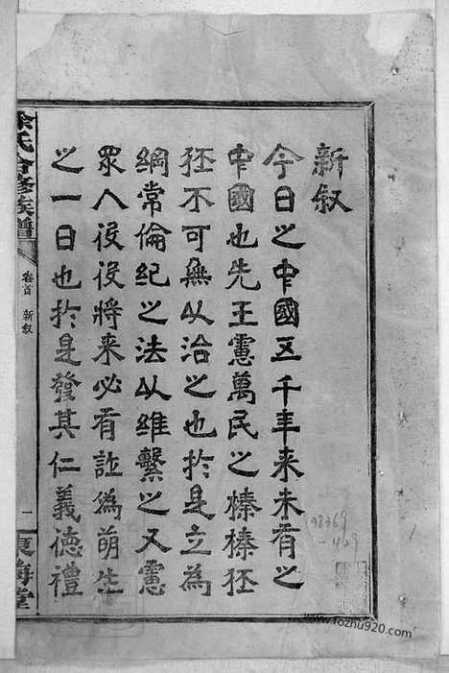 新叙
今日之中國五千年来未有之
中國也先王慮萬民之榛榛狉
狉不可無以治之也扵是立為
綱常倫紀之法以維繫之又慮
眾人役役將来必有詐為萌生
之一日也扵是發其仁義德禮
徐氏合修族譜
卷首 新叙
一
東海堂
www.fozhu920.com